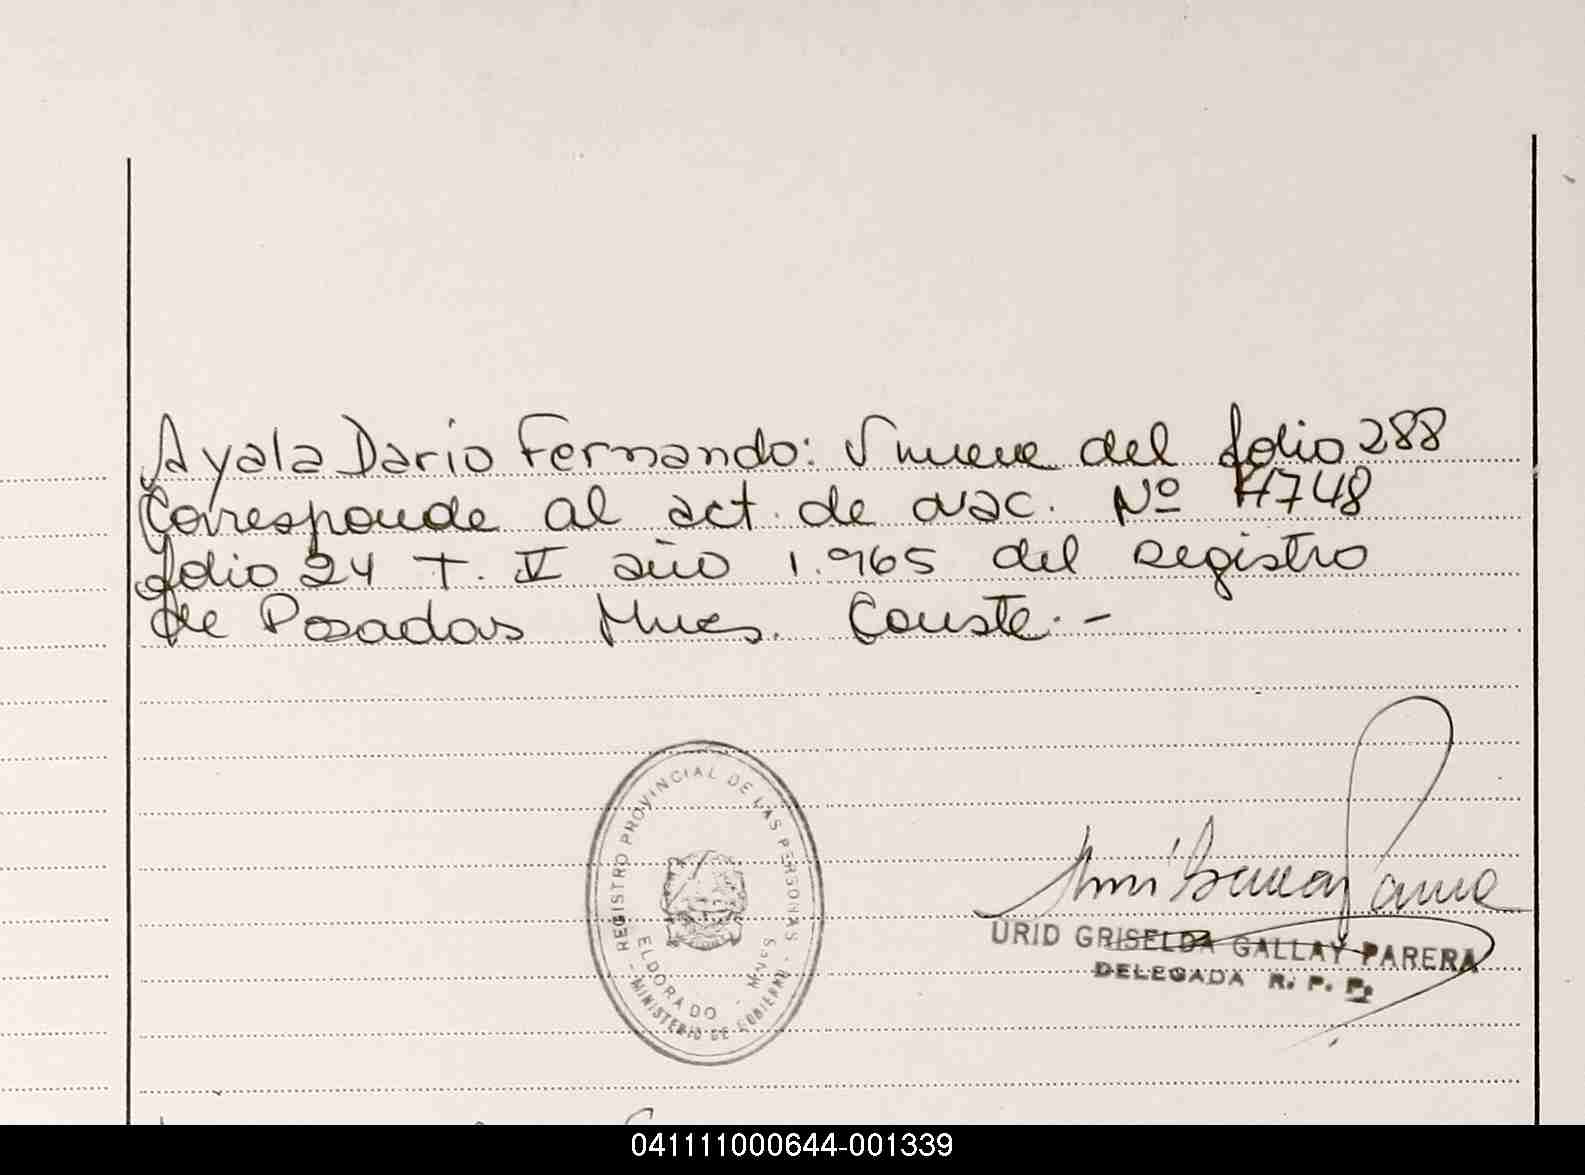 Ayala Dario Fernando: Vmueve del folio 288
Corresponde al act. de nac. Nº 4748
folio 24 T. V año 1.965 del registro
de Posadas Mnes. Conste.-
REGISTRO PROVINCIAL DE LAS PERSONAS
- MINISTERIO DE GOBIERNO -
ELDORADO - Mnes
URID GRISELDA GALLAY PARERA
DELEGADA R. P. P.
041111000644-001339